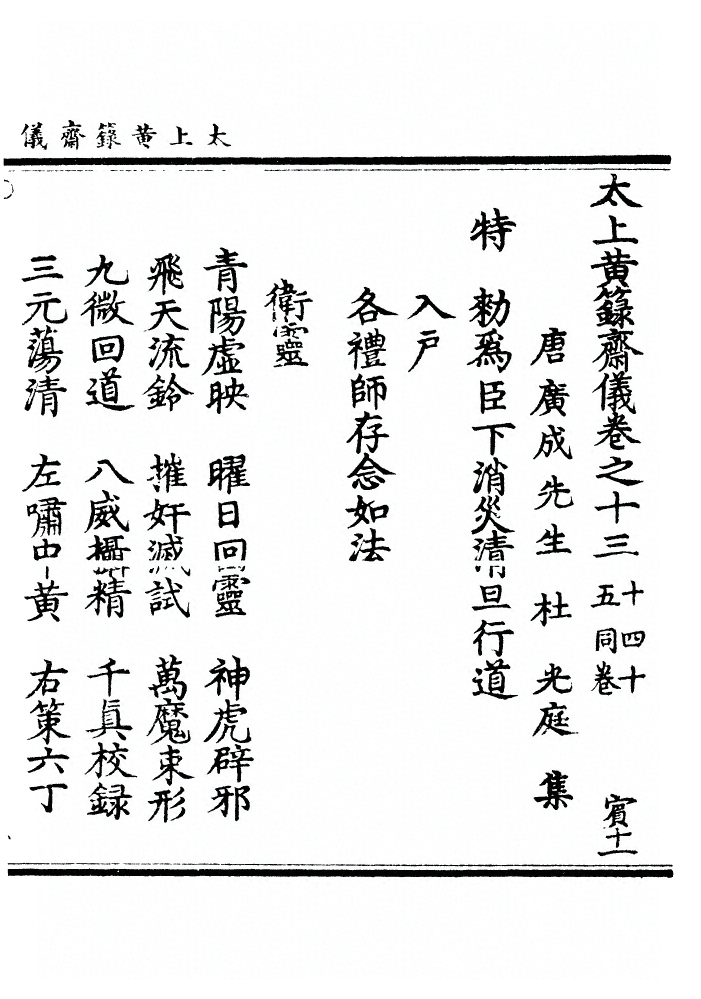 太上黃籙齋儀
太上黃籙齋儀卷之十三 十四十五同卷 賓十一
唐廣成先生杜光庭集
特勑爲臣下消災清旦行道
入戶
各禮師存念如法
衛靈
青陽虛映 曜日回靈 神虎辟邪
飛天流鈴 摧奸滅試 萬魔束形
九微回道 八威攝精 千眞校録
三元蕩清 左嘯中黃 右策六丁